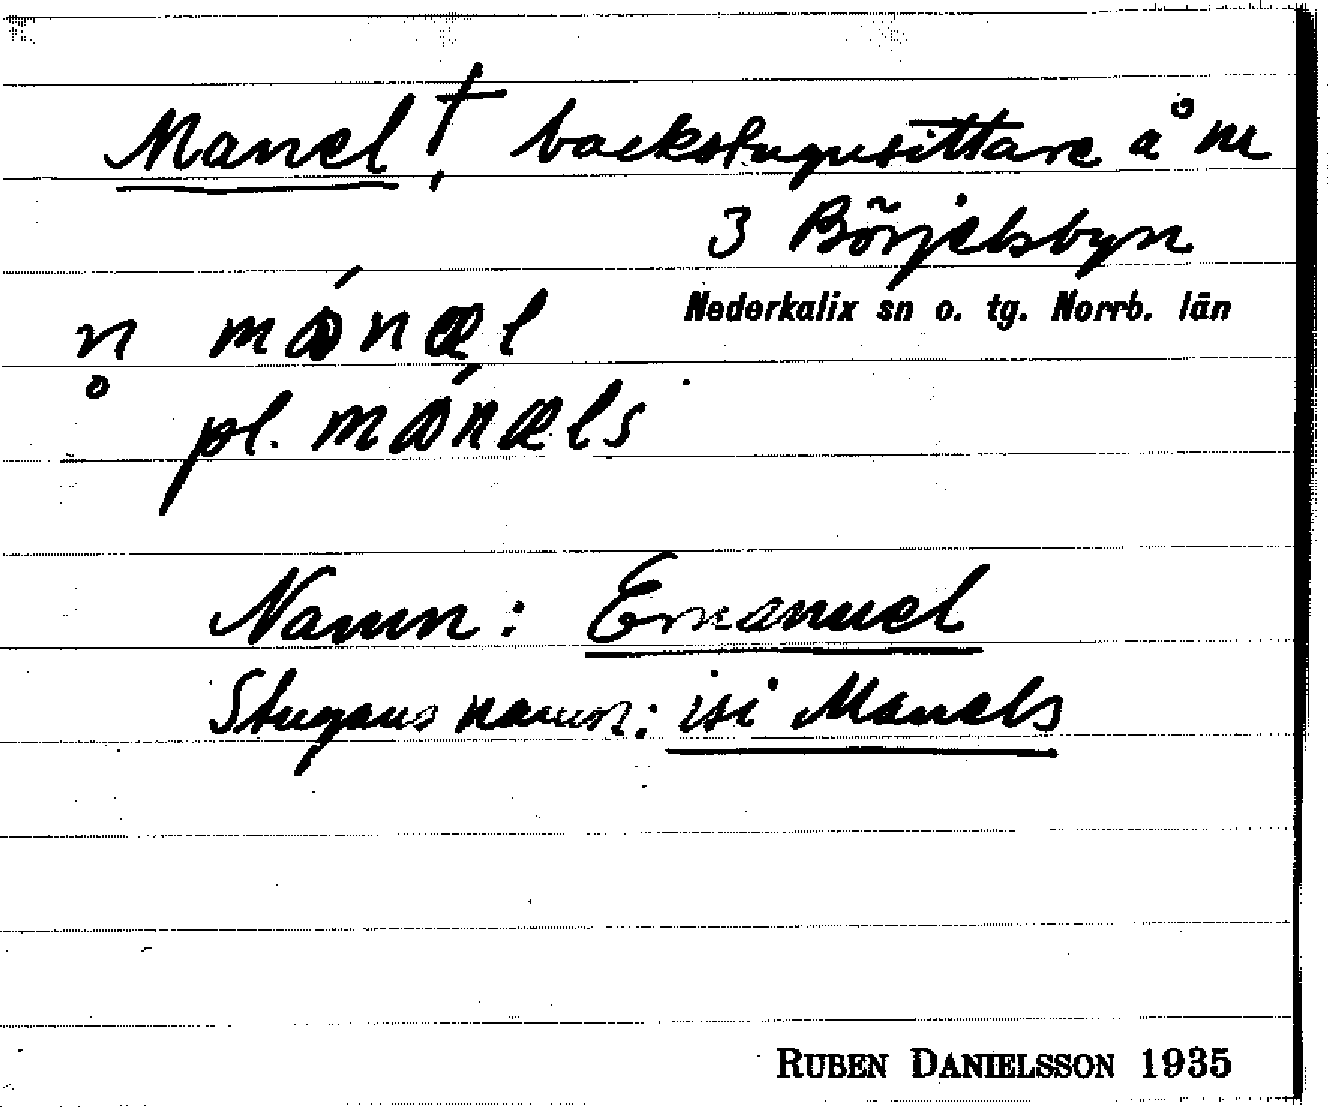 Manel †, backstugusittare å nr
3 Börjelsbyn
Nederkalix sn o. tg. Norrb. län
n månæl
o
pl. månæls
Namn: Emanuel
Stugans namn: isi Manels
RUBEN DANIELSSON 1935